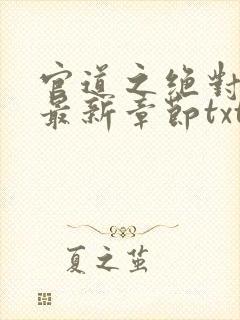 官道之绝对
最新章節txt
夏之茧